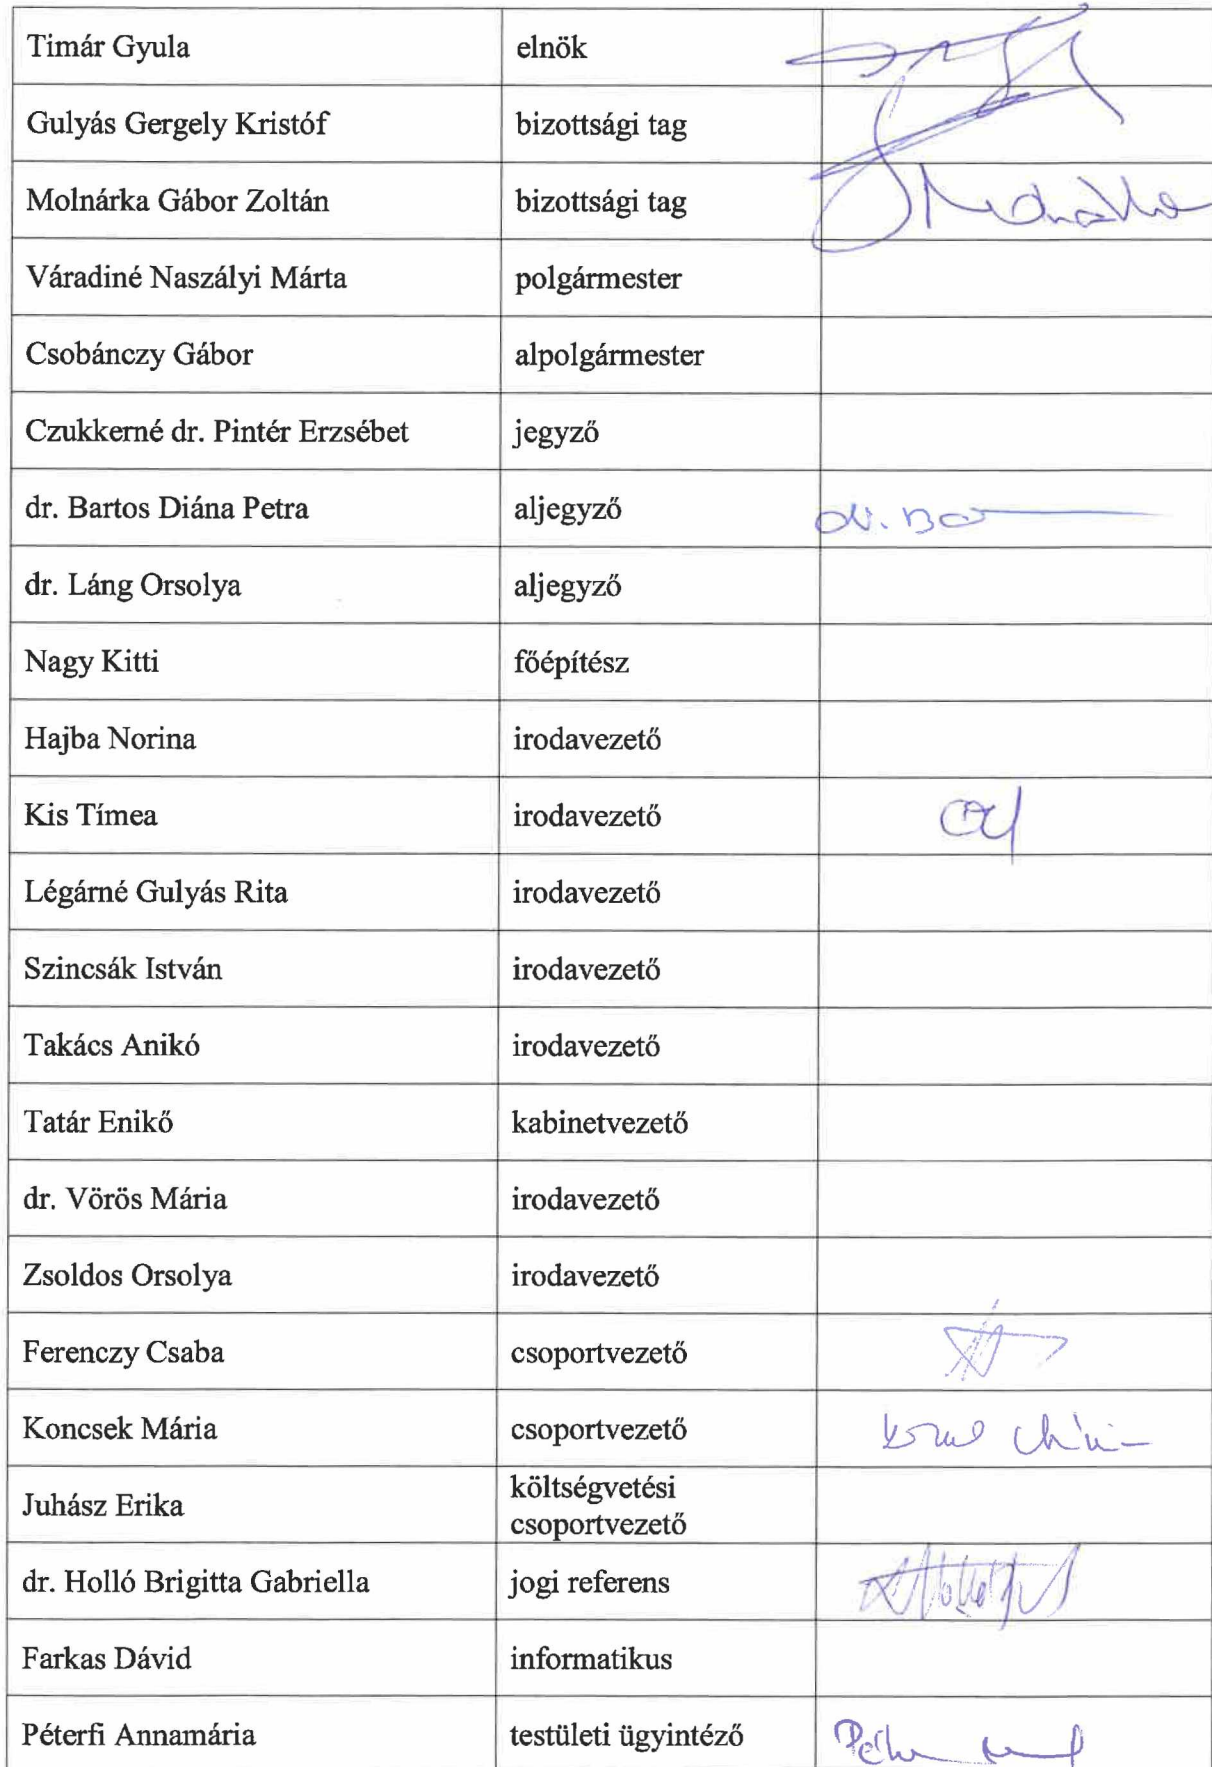 Timár Gyula elnök
Gulyás Gergely Kristóf bizottsági tag
Molnárka Gábor Zoltán bizottsági tag
Váradiné Naszályi Márta polgármester
Csobánczy Gábor alpolgármester
Czukkerné dr. Pintér Erzsébet jegyző
dr. Bartos Diána Petra aljegyző
dr. Láng Orsolya aljegyző
Nagy Kitti főépítész
Hajba Norina irodavezető
Kis Tímea irodavezető
Légárné Gulyás Rita irodavezető
Szincsák István irodavezető
Takács Anikó irodavezető
Tatár Enikő kabinetvezető
dr. Vörös Mária irodavezető
Zsoldos Orsolya irodavezető
Ferenczy Csaba csoportvezető
Koncsek Mária csoportvezető
Juhász Erika költségvetési
csoportvezető
dr. Holló Brigitta Gabriella jogi referens
Farkas Dávid informatikus
Péterfi Annamária testületi ügyintéző